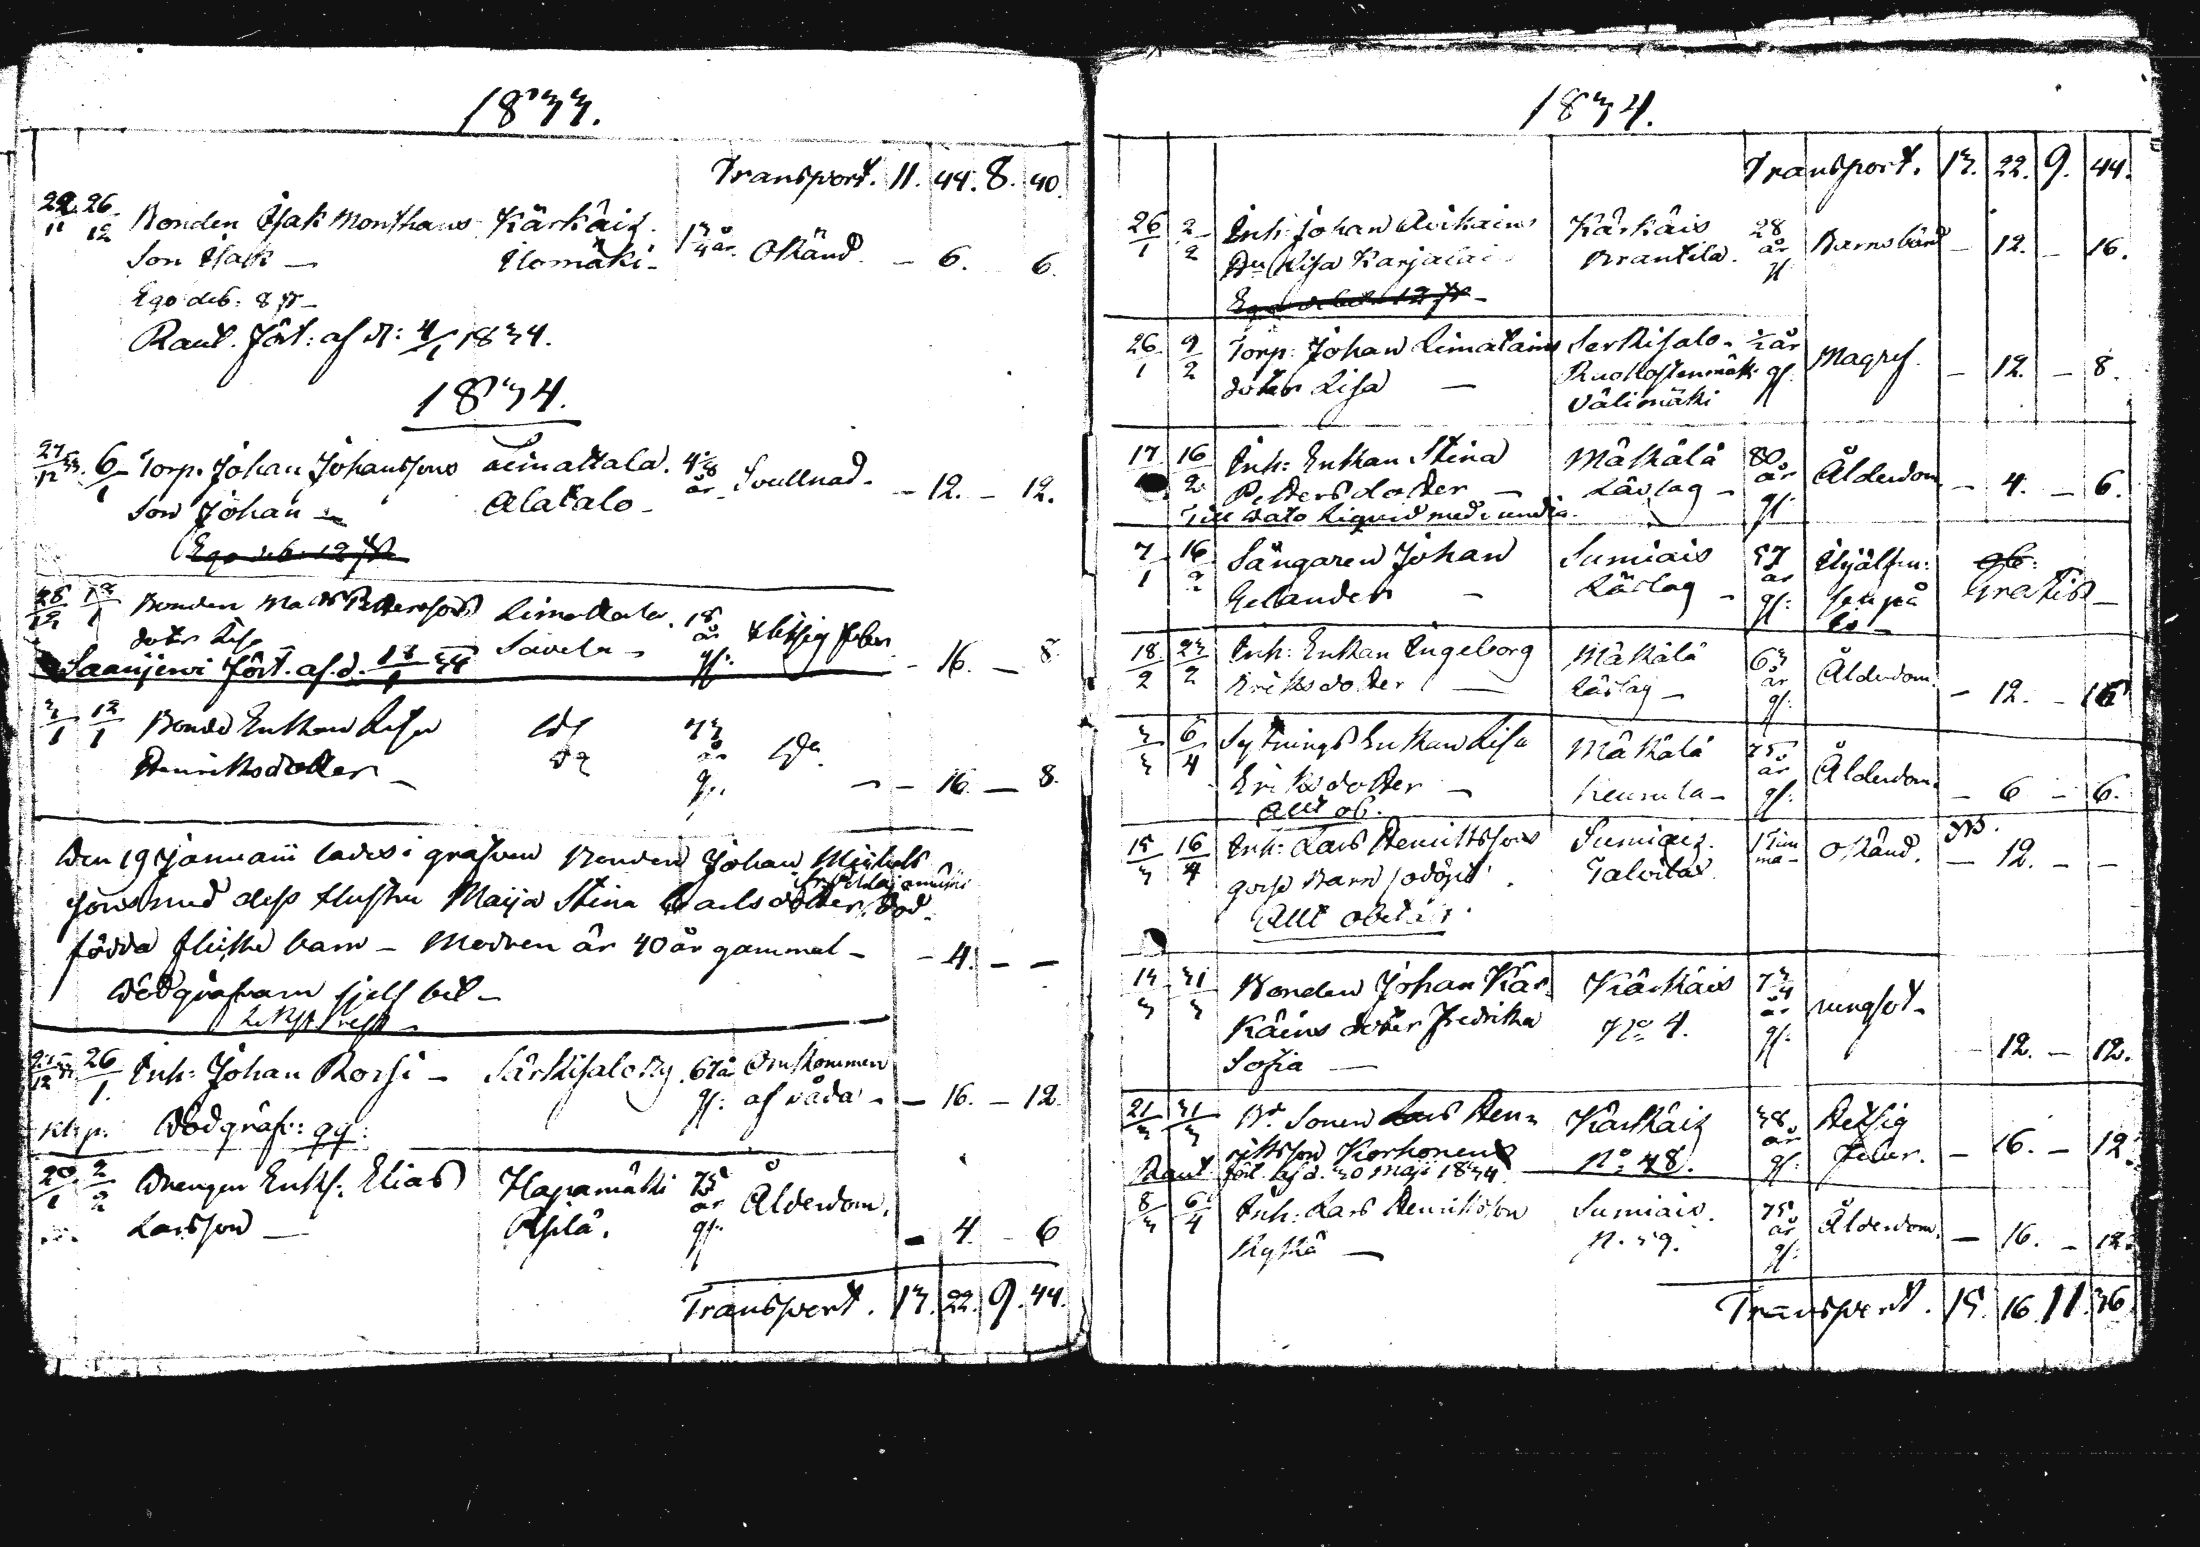 1833.
Transport. 11. 44. 8. 40.
22/11 26/12 Bonden Isak Monthans Kärkäis. 1 3/4 år. Okänd. - 6. 6.
Son Isak — Ilomäki -
Ego deb: 8
Raut. fört: af d: 4/1 1834.
1834.
27/12 33. 6/1 Torp. Johan Johanssons Leinattala. 4 1/8 år Svullnad - - 12. - 12.
Son Johan — Alatalo -
Ego deb: 12
28/12 12/1 Bonden Matts Pettersons Limattala. 18 år Hetsig feber - 16. - 8
doter Lisa - Savela - gl:
Saarijerwi fört. af. d. 18/1 34
3/1 12/1 Bonde Enkan Lisa 73 år - 16. - 8.
Henriksdotter - gl.
Den 19 Januarii lades i grafven Bonden Johan Michels
sons med dess Hustru Maija Stina Carlsdotter, död-
födda flicke barn - Modren är 40 år gammal - - 4. - -
Dödgräfvarn sjelf bet -
12 33 26/1. Inh: Johan Rossi - Särkisalo By. 67 år Omkommen
gl: af våda - - 16. - 12.
Khp. Dödgräfv: qq:
20/1 2/2 Drengen Enkl: Elias Hapamäki 75 år Ålderdom.
Larsson — gl: - 4. - 6
Transport. 13. 22. 9. 44.
1834.
Transport. 13. 22. 9. 44.
26/1 2/2 Inh: Johan Avikains Kärkäis 28 år Barnsbörd - 12. - 16.
Hu Lisa Karjalai Krantila. gl
Ego debet 12
26/1 9/2 Torp: Johan Limatains Serkisalo - 1/2 år Magref. - 12. - 8.
doter Lisa — Ruokostenmäki gl:
Välimäki
17 16/2 Inh: Enkan Stina Mäkälä 80 år Ålderdom - 4. - 6.
Pettersdotter — Läslag - gl:
Till Dato Liqvid med
7/1 16/2 Sångaren Johan Sumiais 57 år
Gelander - Läslag - gl: Gratis -
18/2 23/2 Inh: Enkan Ingeborg Mäkälä 63 år Ålderdom. - 12. - 16
Eriksdotter — Läslag - gl:
3/3 6/4 Sytnings Enkan Lisa Mäkälä 75 år Ålderdom. - 6 - 6.
Eriksdotter - gl:
Allt ob.
15/3 16/4 Inh: Lars Henrikssons Sumiais. 1 tim Okänd. - 12. - -
gosse Barn Talvitas. ma -
Allt obetalt.
14/3 31/3 Bonden Johan Kär- Kärkäis 7 3/4 år
käins doter Fredrika No 4. gl: - 12. - 12.
Sofia —
21/3 31/3 Bd Sonen Lars Hen- Kärkäis 38 år Hetsig
riksson Korhonen No 48. gl: feber. - 16. - 12.
Raut fört. af d. 30 Maji 1834.
8/3 6/4 Inh: Lars Henriksson Sumiais. 75 år Ålderdom. - 16. - 12.
Kykkä — N. 59. gl:
Transport. 15. 16. 11. 36.